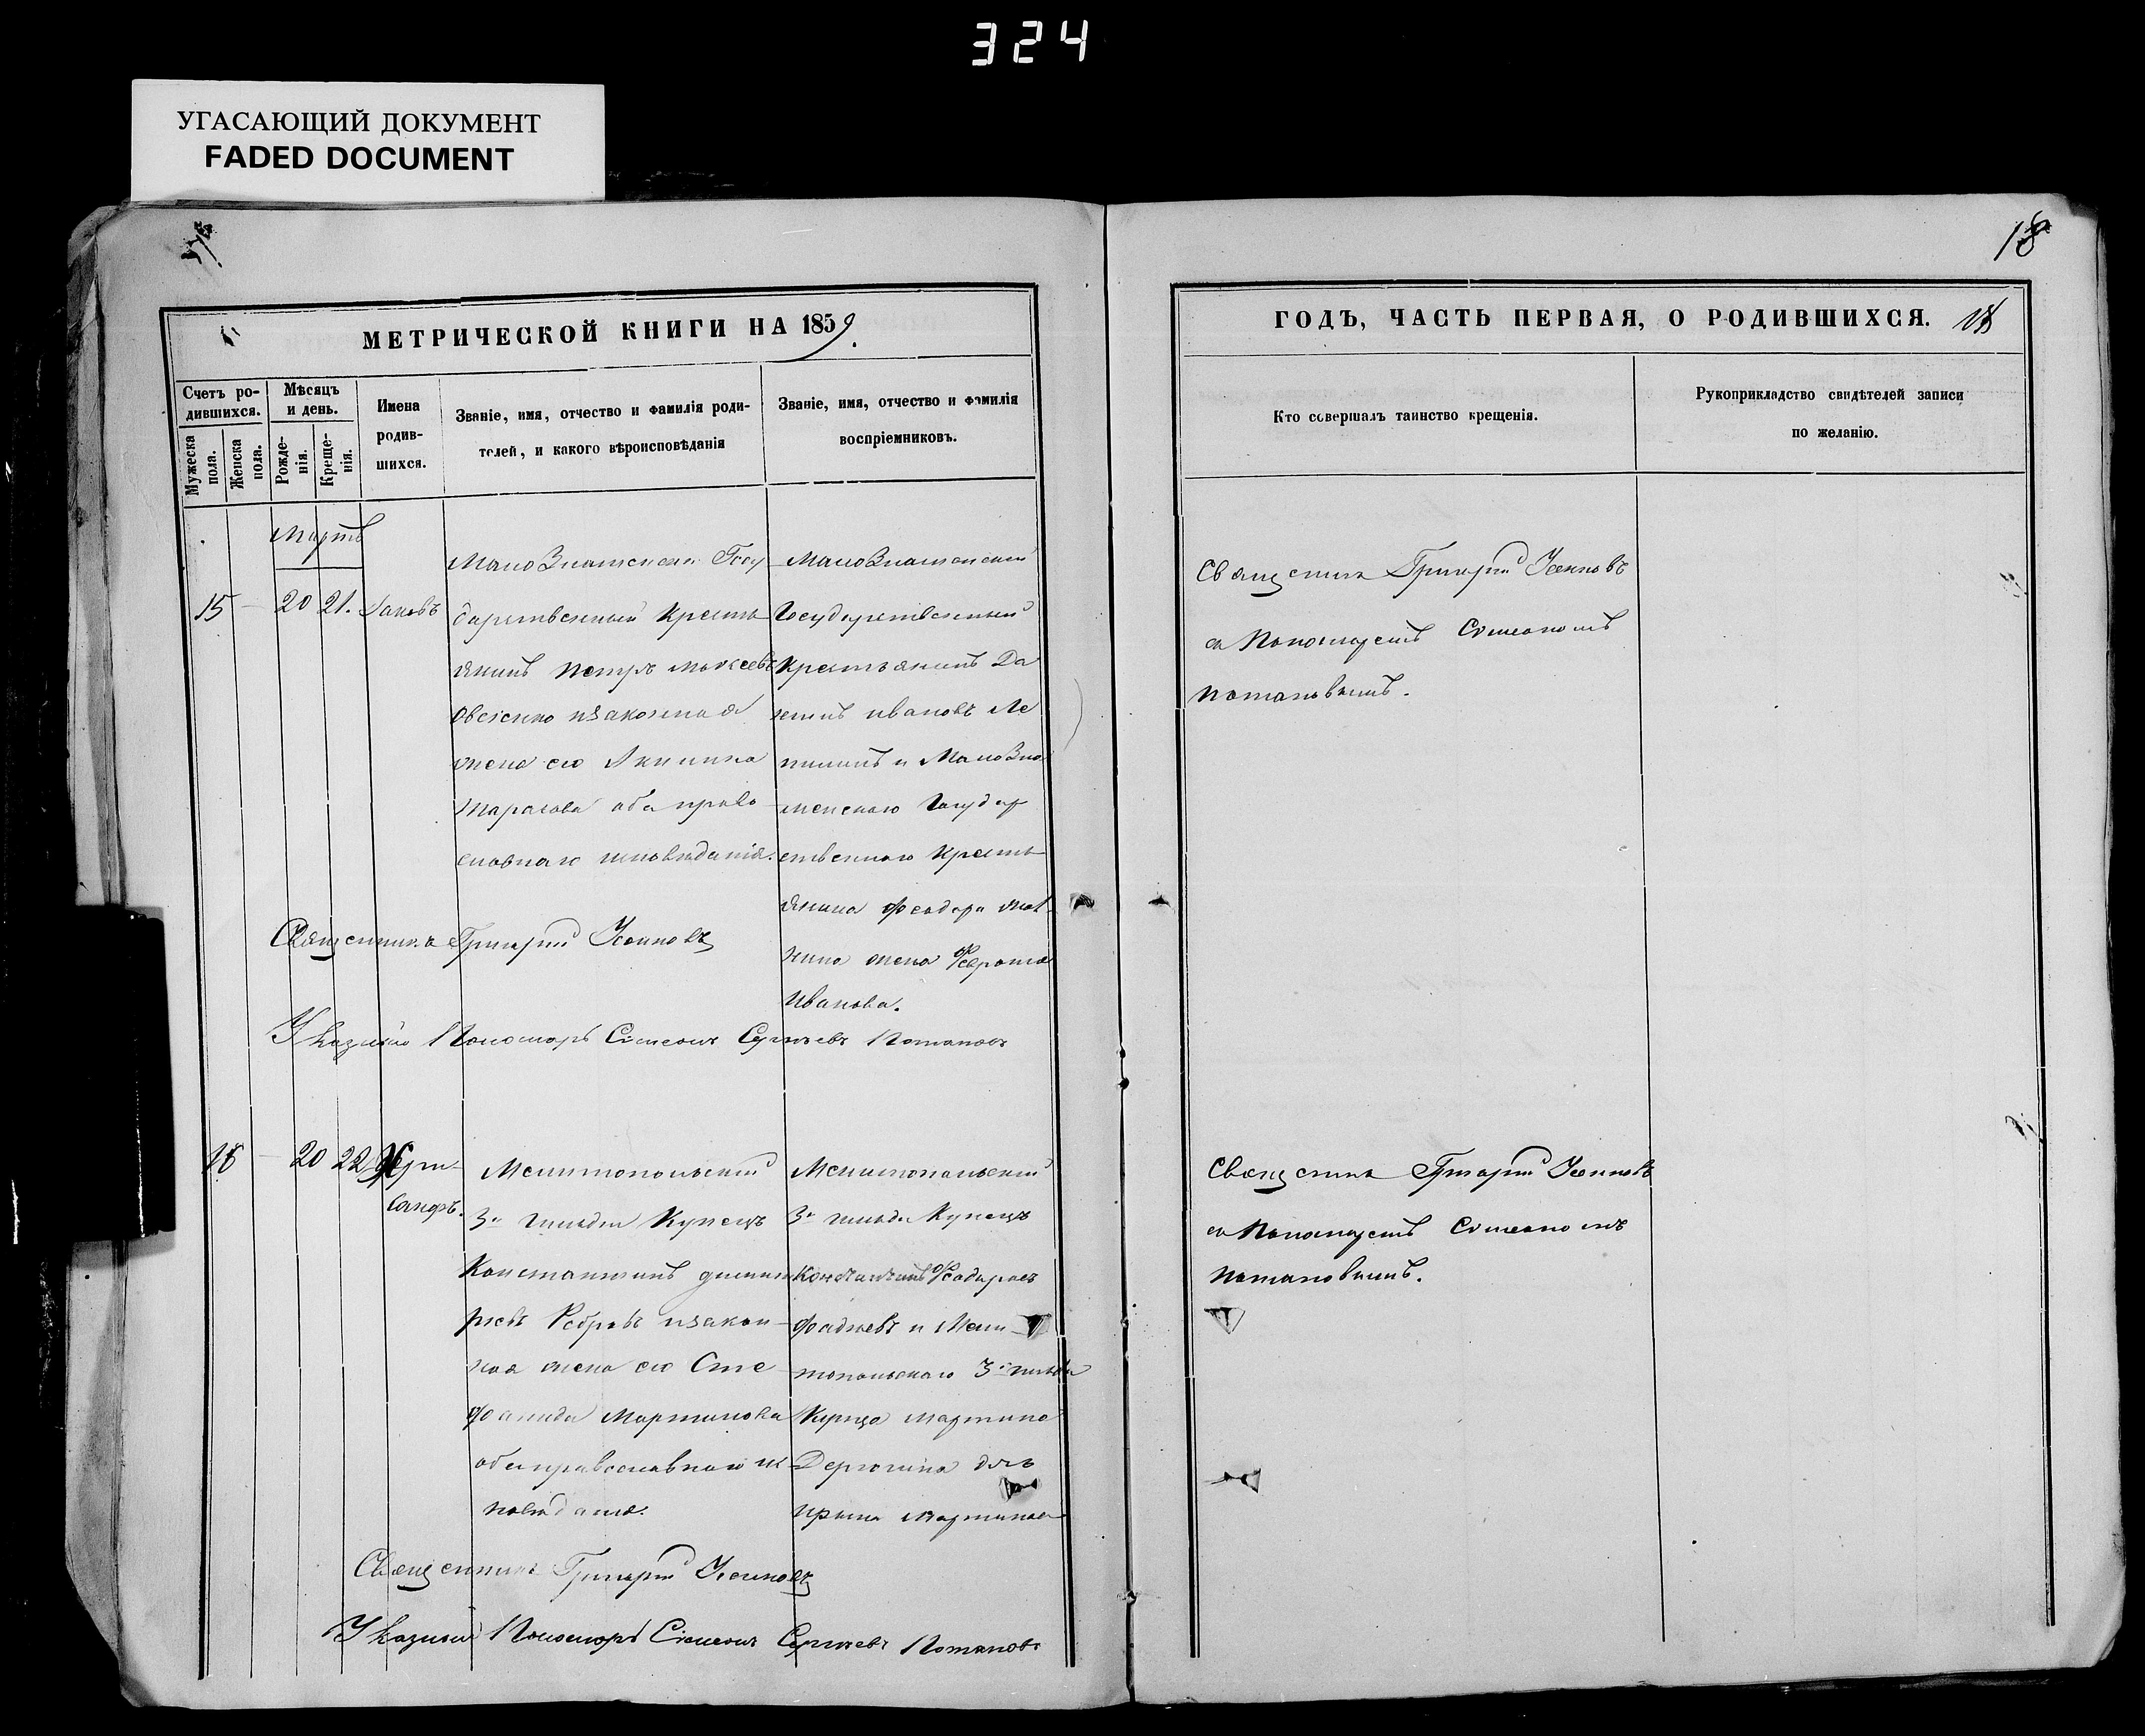 324
УГАСАЮЩИЙ ДОКУМЕНТ
FADED DOCUMENT
18
МЕТРИЧЕСКОЙ КНИГИ НА 1859.
Счетъ ро-
дившихся.
Мужеска пола.
Женска пола.
Мѣсяцъ
и день.
Рожде-
нія.
Креще-
нія.
Имена
родив-
шихся.
Званіе, имя, отчество и фамилія роди-
телей, и какого вѣроисповѣданія
Званіе, имя, отчество и фамилія
воспріемниковъ.
Мартъ
15 20 21. Іаковъ
МалоЗнаменскій Госу
дарственный кресть
янинъ Петръ
и законная
жена его Акилина
Тарасова оба право
славнаго исповѣданія.
МалоЗнаменскій
Государственный
крестьянинъ Да
нилъ Ивановъ Ле
и МалоЗна
менскаго Государ
ственнаго кресть
янина Феодора
жена Февронія
Иванова.
Священникъ Григорій
Указный Пономарь Сімеонъ Сергѣевъ Потаповъ
16 20 22 Хри
санфъ.
Мелитопольскій
3й гильдіи Купецъ
Константинъ Димит
ріевъ Ребровъ и закон
ная жена его Сте
фанида Мартинова
оба православнаго ис
повѣданія.
Мелитопольскій
3й гильдіи Купецъ
Константинъ Феодоровъ
Фадѣевъ и Мели
топольскаго 3й гильдіи
Купца Мартина
Дерюгина дочь
Ирина Мартинова
Священникъ Григорій
Указный Пономарь Сімеонъ Сергѣевъ Потаповъ
ГОДЪ, ЧАСТЬ ПЕРВАЯ, О РОДИВШИХСЯ.
Кто совершалъ таинство крещенія.
Рукоприкладство свидѣтелей записи
по желанію.
Священникъ Григорій
съ Пономаремъ Сімеономъ
Потаповымъ.
Священникъ Григорій
съ Пономаремъ Сімеономъ
Потаповымъ.